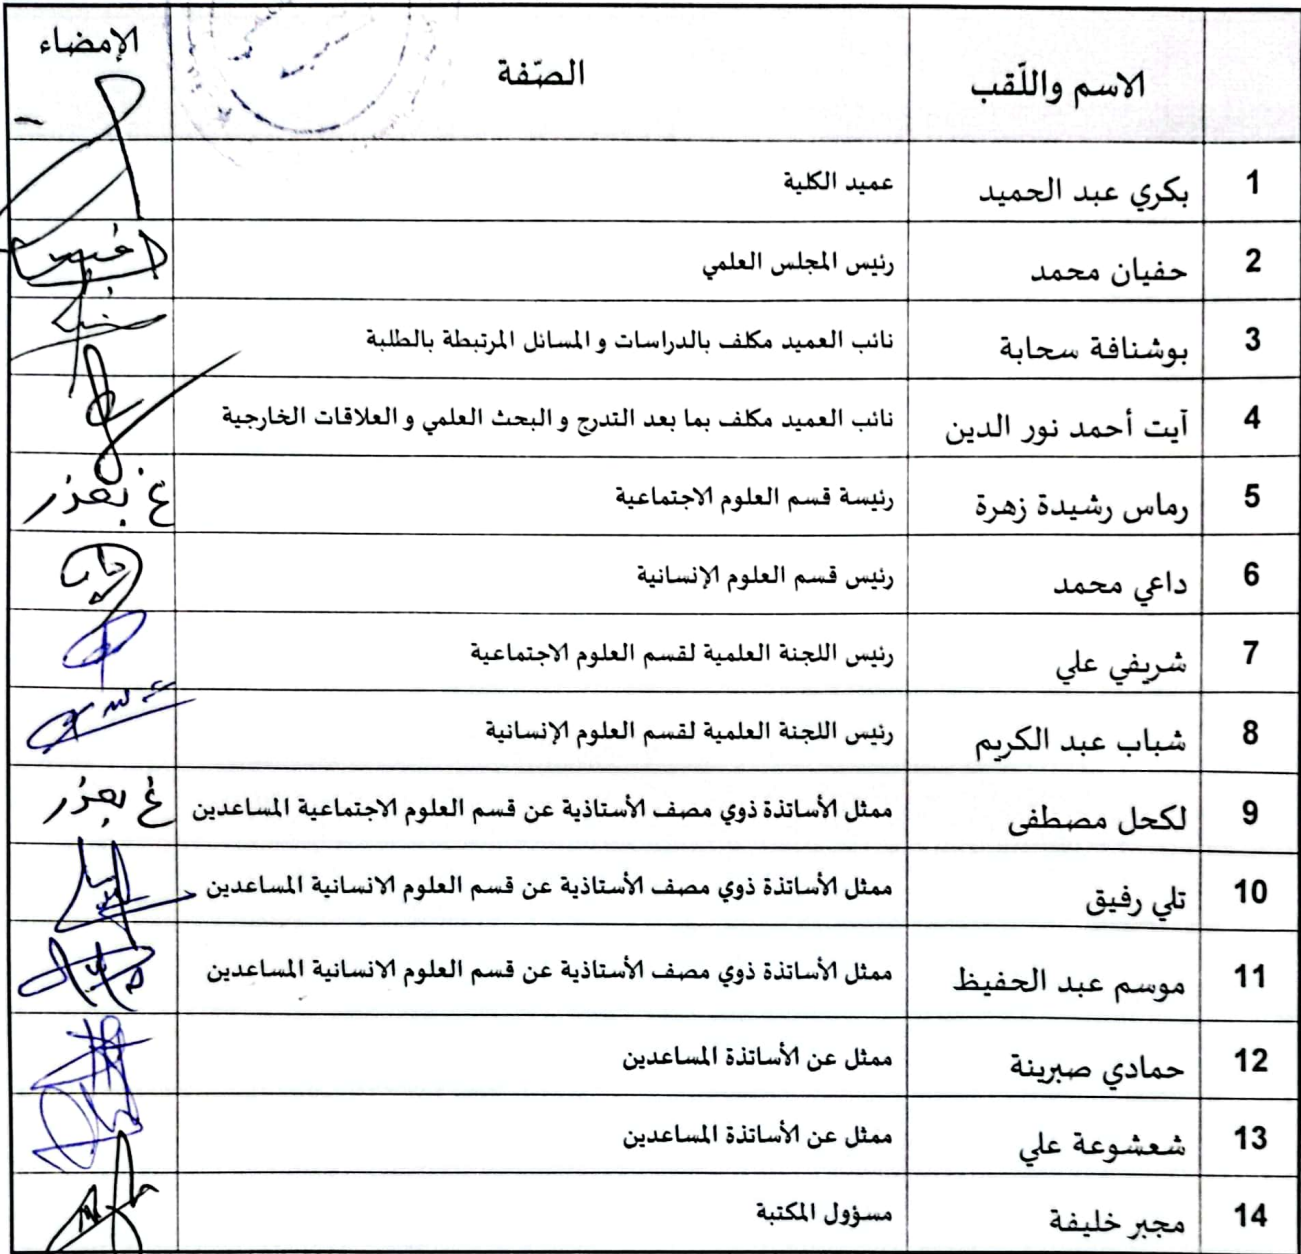 الاسم واللّقب الصّفة الإمضاء
1 بكري عبد الحميد عميد الكلية
2 حفيان محمد رئيس المجلس العلمي
3 بوشنافة سحابة نائب العميد مكلف بالدراسات و المسائل المرتبطة بالطلبة
4 آيت أحمد نور الدين نائب العميد مكلف بما بعد التدرج و البحث العلمي و العلاقات الخارجية
5 رماس رشيدة زهرة رئيسة قسم العلوم الاجتماعية غ بعذر
6 داعي محمد رئيس قسم العلوم الإنسانية
7 شريفي علي رئيس اللجنة العلمية لقسم العلوم الاجتماعية
8 شباب عبد الكريم رئيس اللجنة العلمية لقسم العلوم الإنسانية
9 لكحل مصطفى ممثل الأساتذة ذوي مصف الأستاذية عن قسم العلوم الاجتماعية المساعدين غ بعذر
10 تلي رفيق ممثل الأساتذة ذوي مصف الأستاذية عن قسم العلوم الانسانية المساعدين
11 موسم عبد الحفيظ ممثل الأساتذة ذوي مصف الأستاذية عن قسم العلوم الانسانية المساعدين
12 حمادي صبرينة ممثل عن الأساتذة المساعدين
13 شعشوعة علي ممثل عن الأساتذة المساعدين
14 مجبر خليفة مسؤول المكتبة